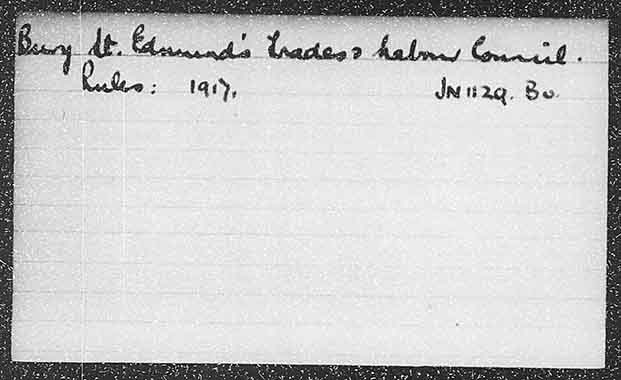 Bury St. Edmund's Trades & Labour Council.
Rules: 1917. JN1129. Bu.